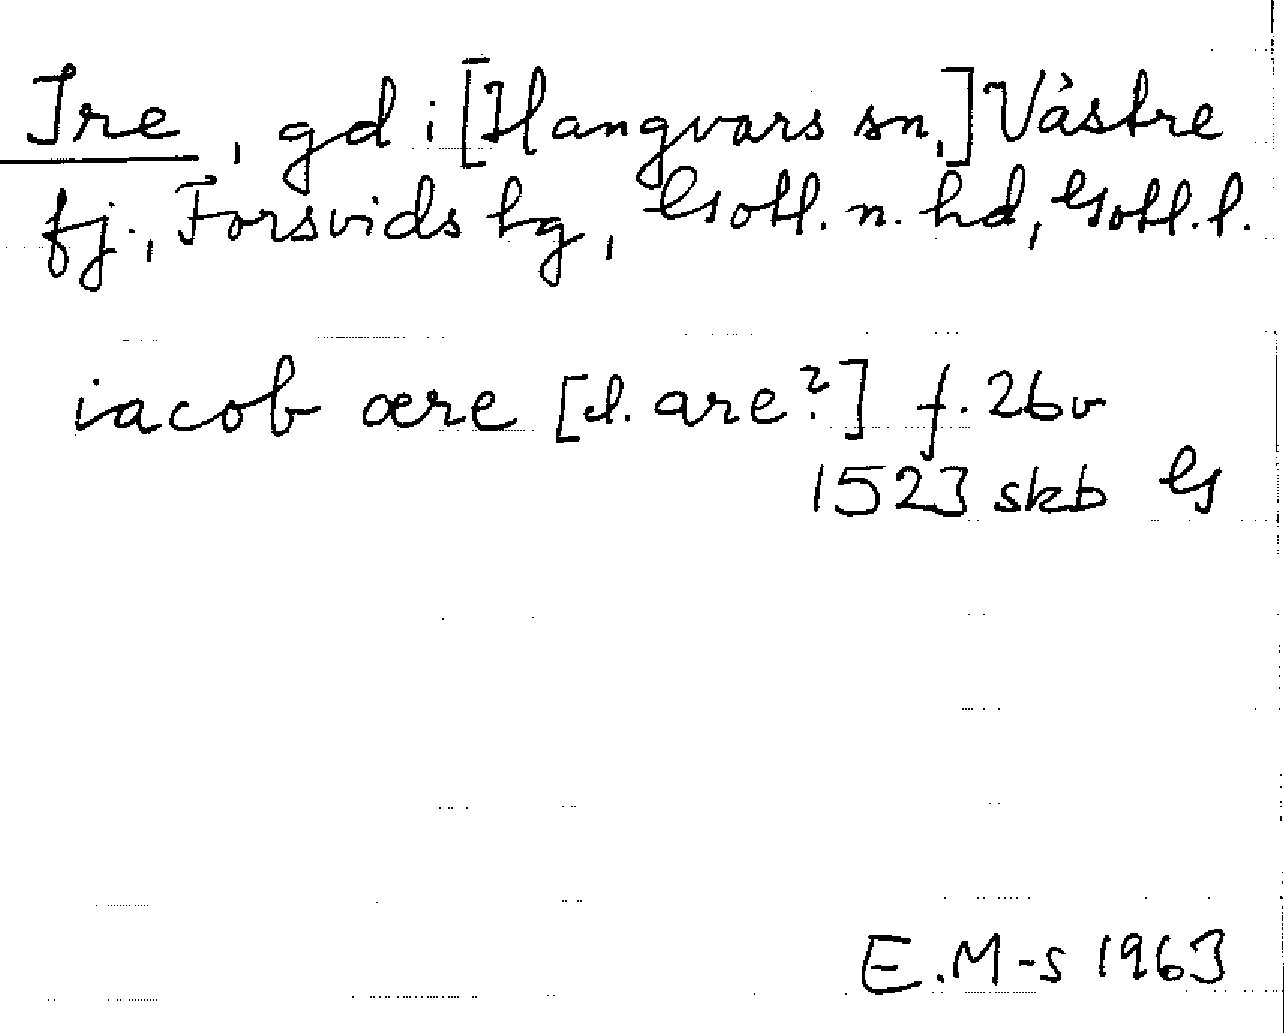 Ire, gd i [Hangvars sn,] Västre
fj., Forsvids tg, Gotl. n. hd, Gotl. l.
iacob ære [d. are?] f. 26v
1523 skb G
E.M-s 1963